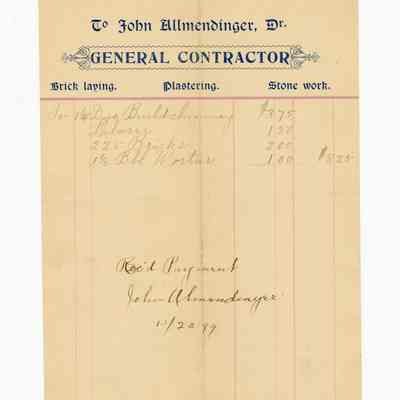 To John Allmendinger, Dr.
GENERAL CONTRACTOR
Brick laying. Plastering. Stone work.
To 1½ Day Build chimney $3.75
1.50
225 Bricks 2.00
1½ Bbl Mortar 1.00 $8.25
Rec'd Payment
John Allmendinger
11/20 99